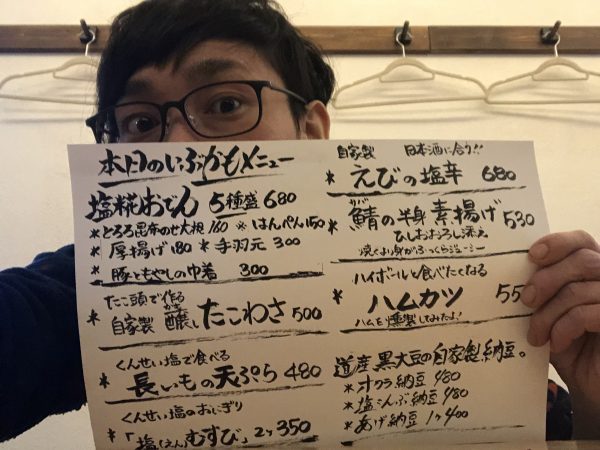 本日のいぶかもメニュー
塩糀おでん 5種盛 680
*とろろ昆布のせ大根 160 *はんぺん 150
*厚揚げ 180 *手羽元 300
*豚ともやしの巾着 300
たこ頭で作る
*自家製 醸し たこわさ 500
くんせい塩で食べる
*長いもの天ぷら 480
くんせい塩のおにぎり
*「塩(えん)むすび」2ヶ 350
自家製 日本酒に合う!!
*えびの塩辛 680
サバ
*鯖の半身 素揚げ 530
ひしおおろし添え
焼くより身がふっくらジューシー
ハイボールと食べたくなる
*ハムカツ 55
ハムを燻製してみたよ!
道産黒大豆の自家製納豆。
*オクラ納豆 480
*塩こんぶ納豆 480
*あげ納豆 1ヶ 400